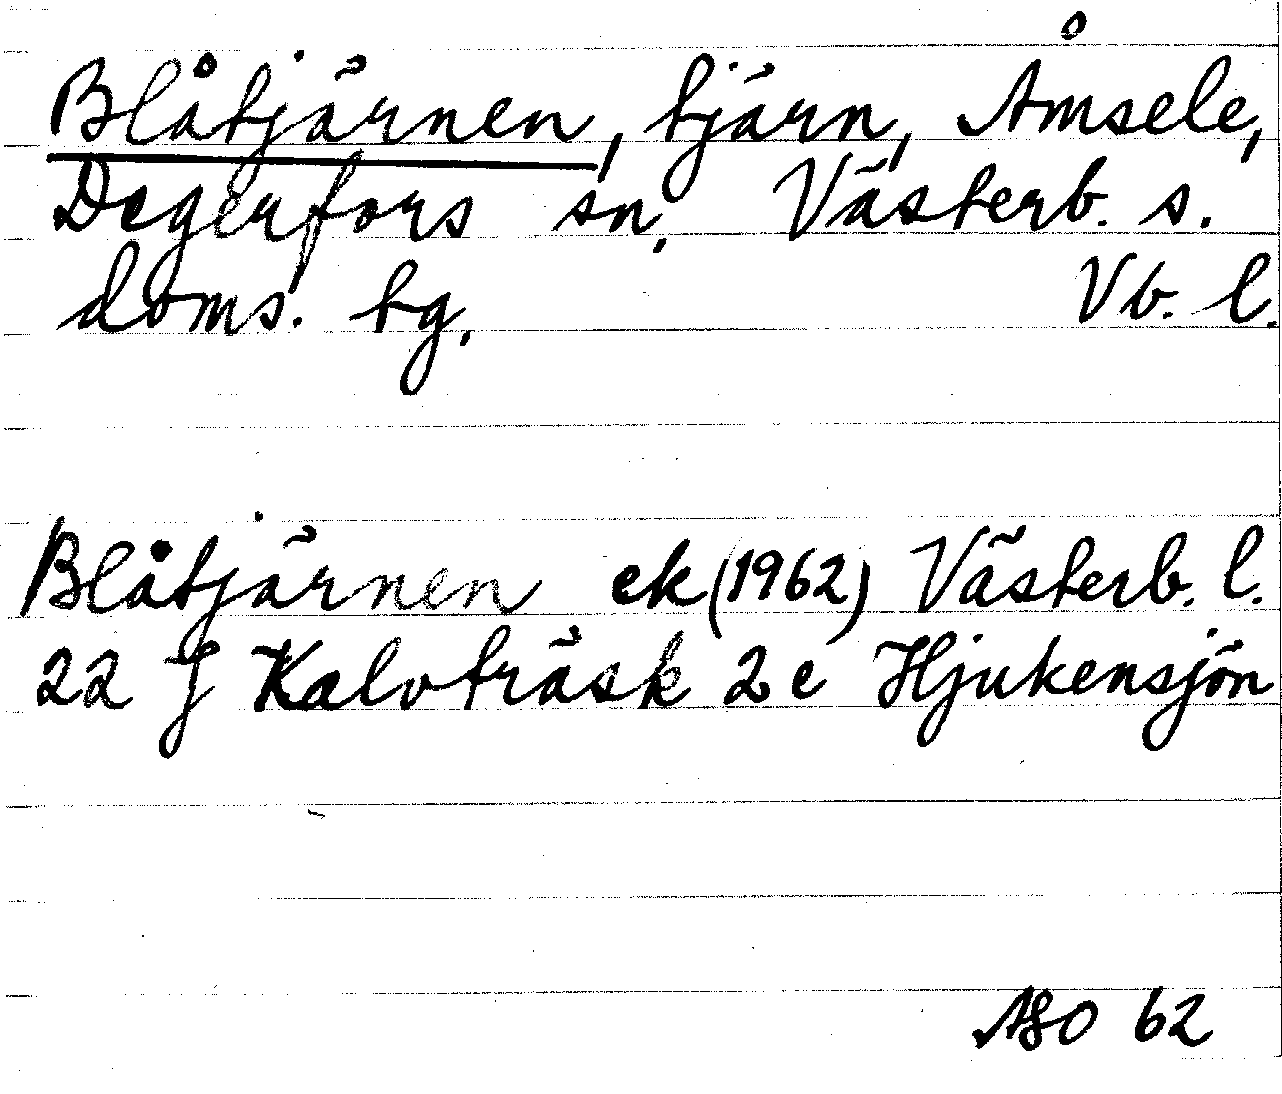 Blåtjärnen, tjärn, Åmsele,
Degerfors sn, Västerb. s.
doms. tg. Vb. l.
Blåtjärnen ek (1962) Västerb. l.
22 J Kalvträsk 2 e Hjukensjön
62